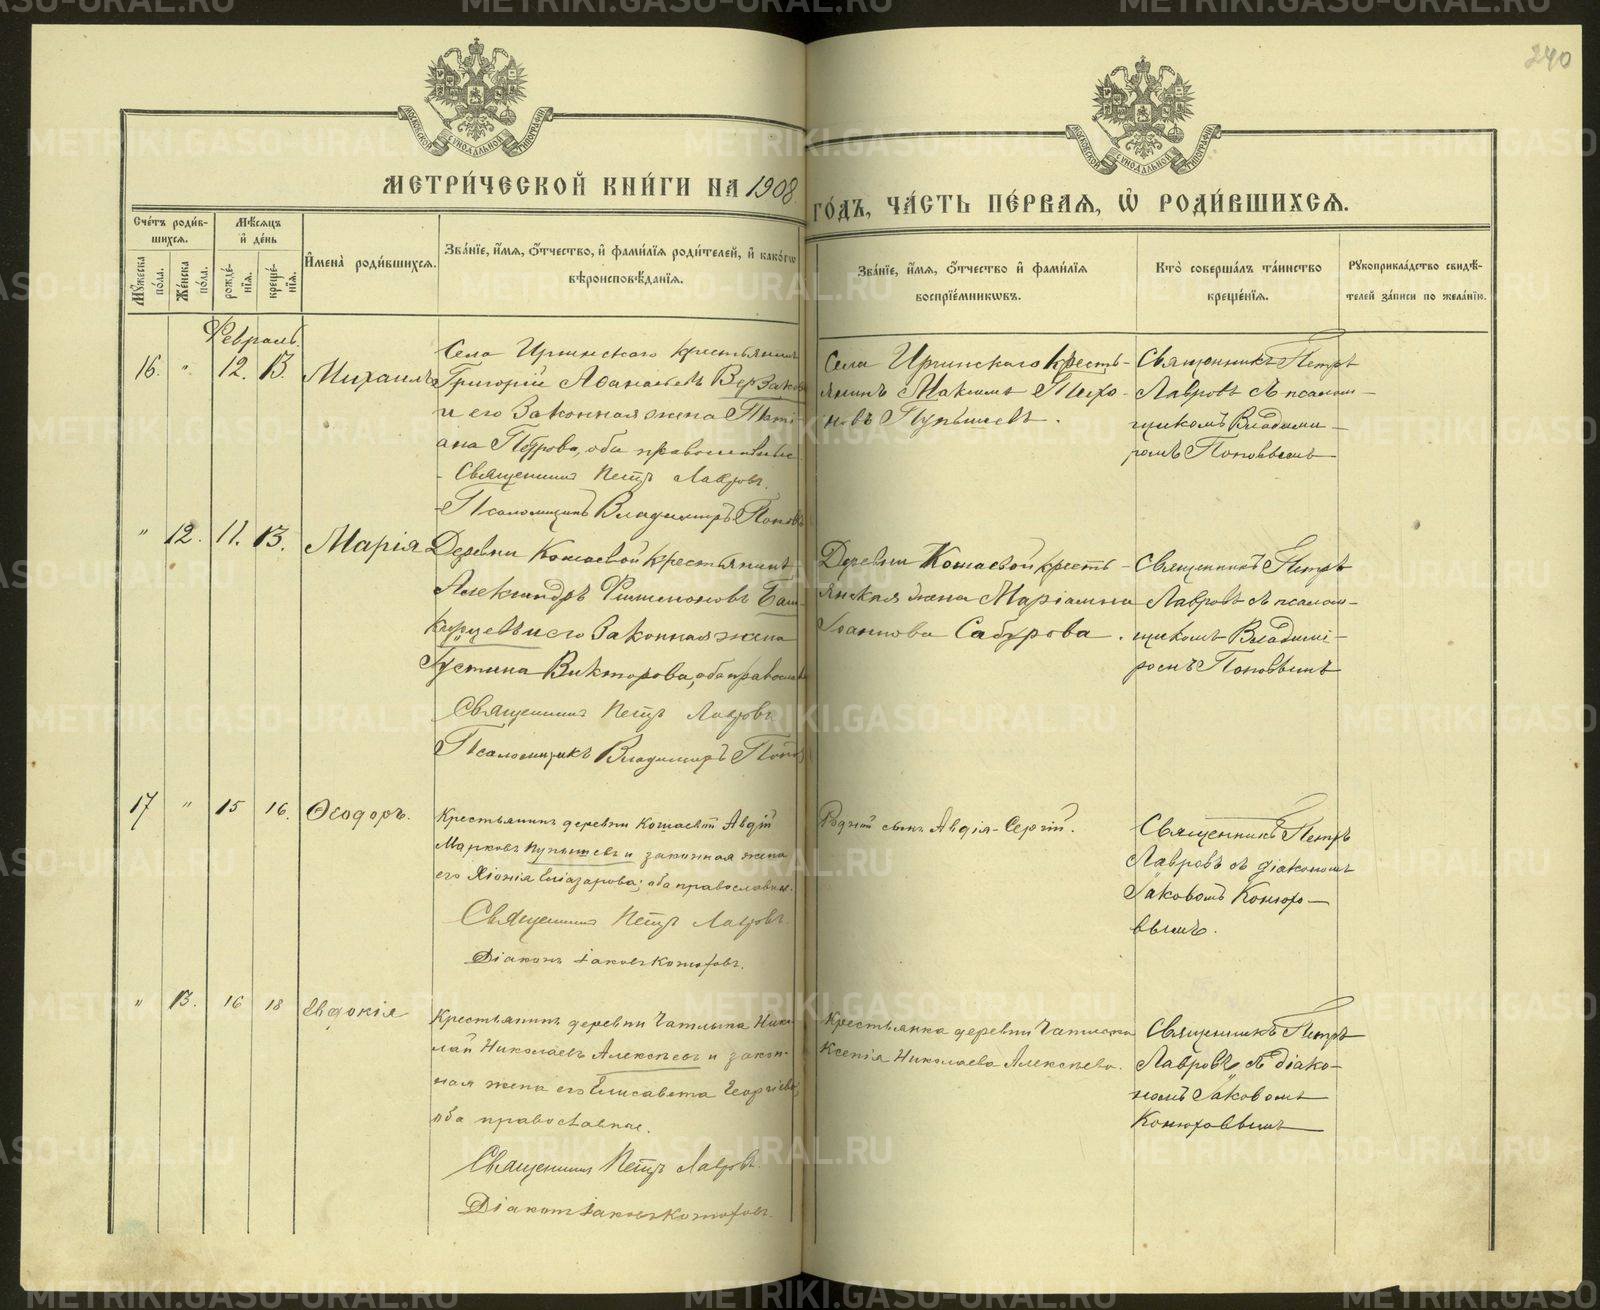 240
МОСКОВСКОЙ СѴНОДАЛЬНОЙ ТИПОГРАФІИ
МОСКОВСКОЙ СѴНОДАЛЬНОЙ ТИПОГРАФІИ
МЕТРИ́ЧЕСКОЙ КНИ́ГИ НА 1908
ГО́ДЪ, ЧА́СТЬ ПЕ́РВАѦ, Ѡ҆ РОДИ́ВШИХСѦ.
Сче́тъ роди́в-
шихсѧ.
Мꙋ́жеска по́ла.
Же́нска по́ла.
Мѣ́сѧцъ
и҆ де́нь
рожде́-
нїѧ.
креще́-
нїѧ.
И҆мена̀ роди́вшихсѧ.
Зва́нїе, и҆́мѧ, ѻ҆́тчество, и҆ фами́лїѧ роди́телей, и҆ како́гѡ
вѣроисповѣ́данїѧ.
Зва́нїе, и҆́мѧ, ѻ҆́тчество и҆ фами́лїѧ
воспрїе́мникѡвъ.
Кто̀ соверша́лъ та́инство
креще́нїѧ.
Рꙋкоприкла́дство свидѣ́-
телей за́писи по жела́нїю.
Февраль.
16. " 12. 13. Михаилъ
Села Иргинскаго крестьянинъ
Григорій Аѳанасьевъ
и его законная жена Тати-
ана Петрова, оба православные
Священникъ Петръ Лавровъ.
Псаломщикъ Владимиръ Поповъ
Села Иргинскаго кресть-
янинъ Максимъ Тихо-
новъ Пупышевъ.
Священникъ Петръ
Лавровъ съ псалом-
щикомъ Владими-
ромъ Поповымъ
" 12. 11. 13. Марія
Деревни Кошаевой крестьянинъ
Александръ Филимоновъ Баш-
кирцевъ и его законная жена
Іустина Викторова, оба православные
Священникъ Петръ Лавровъ
Псаломщикъ Владимиръ Поповъ
Деревни Кошаевой кресть-
янская жена Маріамна
Іоаннова Сабурова.
Священникъ Петръ
Лавровъ съ псалом-
щикомъ Владимі-
ромъ Поповымъ
17 " 15 16. Ѳеодоръ.
Крестьянинъ деревни Кошаевой Авдій
Марковъ Пупышевъ и законная жена
его Хіонія Еліазарова; оба православные.
Священникъ Петръ Лавровъ.
Діаконъ Іаковъ Конюховъ.
Родной сынъ Авдія - Сергій.
Священникъ Петръ
Лавровъ съ діакономъ
Іаковомъ Конюхо-
вымъ.
" 13. 16 18 Евдокія
Крестьянинъ деревни Чатлыка Нико-
лай Николаевъ Алексѣевъ и закон-
ная жена его Елисавета Георгіева,
оба православные.
Священникъ Петръ Лавровъ.
Діаконъ Іаковъ Конюховъ.
Крестьянка деревни Чатлыка
Ксенія Николаева Алексѣева.
Священникъ Петръ
Лавровъ съ діако-
номъ Іаковомъ
Конюховымъ
METRIKI.GASO-URAL.RU